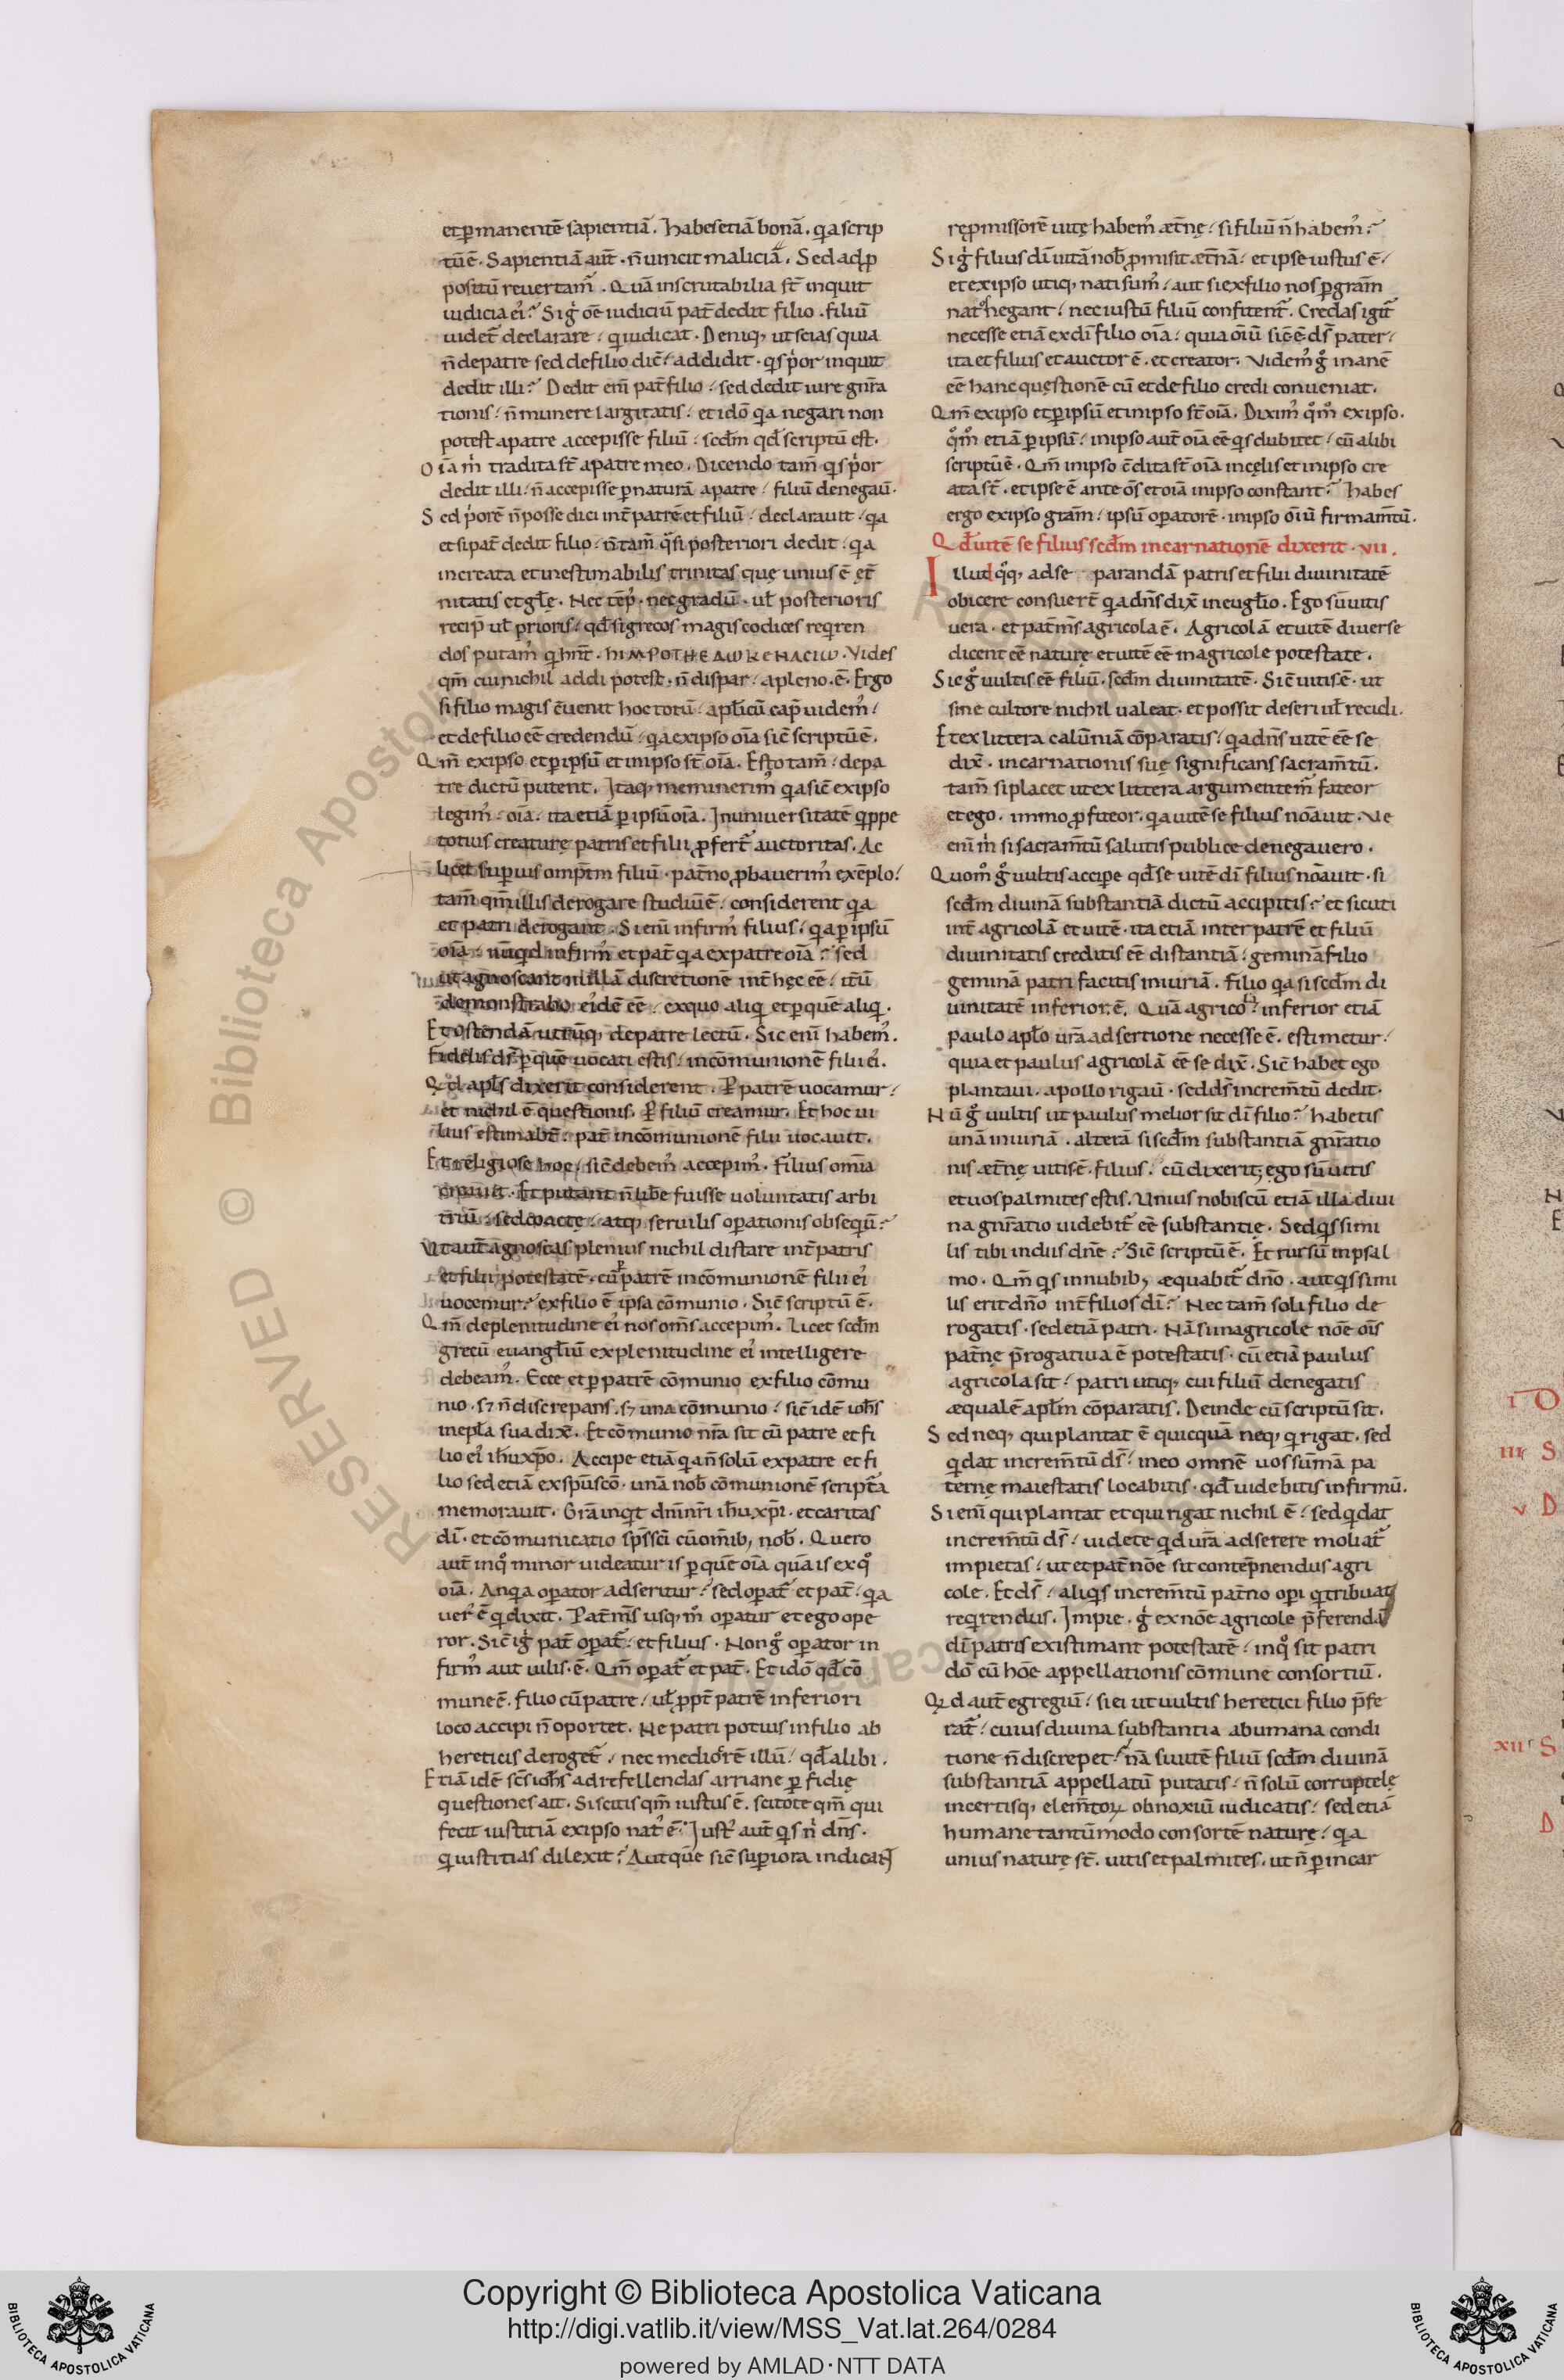 et ꝑmanentē sapientiā. Habes etiā bonā. qa scrip
tū ē. Sapientiā aut̄. n̄ uincit maliciā. Sed ad ꝓ
positū reuertam̄. Quā inscrutabilia st̄ inquit
iudicia ei᾽. Sig̍ oē iudiciū pat̄ dedit filio. filiū
uidet̄ declarare qͥ iudicat. Deniq; ut scias quia
n̄ de patre sed de filio dic̄. addidit. qͥs pͥor inquit
dedit illi. Dedit em̄ pat̄ filio. sed dedit iure gn̄ra
tionis. n̄ munere largitatis. et idō qa negari non
potest a patre accepisse filiū. scd̄m qd̄ scriptū est.
Oīa m̍ tradita st̄ a patre meo. Dicendo tam̄ qͥs pͥor
dedit illi. n̄ accepisse ꝑ naturā a patre filiū denegau̅.
Sed pͥorē n̄ posse dici int̄ patrē et filiū declarauit. qa
et si pat̄ dedit filio. n̄ tam̄ qͣsi posteriori dedit. qa
increata et inestimabilis trinitas quę unius ē ęt̄
nitatis et gl̄ę. Nec tēp᾽. nec gradū. ul̄ posterioris
recip̄ ul̄ prioris. qd̄ si grecos magis codices reqͥren
dos putam᾽ qͥ hn̄t. Vides
qm̄ cui nichil addi potest. n̄ dispar a pleno. ē. Ergo
si filio magis c̄uenit hoc totū. apl̄icū cap̄ uidem᾽
et de filio eē credendū. qa ex ipso oīa sic̄ scriptū ē.
Qm̄ ex ipso et ꝑ ipsū et in ipso st̄ oīa. Esto tam̄. de pa
tre dictū putent. Itaq; meminerim᾽ qa sic̄ ex ipso
legim᾽ oīa. ita etiā ꝑ ipsū oīa. In uniuersitatē qͥppe
totius creaturę patris et filii ꝓfert̄ auctoritas. Ac
licet superius omp̄tm̄ filiū. pat̄no ꝓbauerim᾽ exēplo.
tam̄ qm̄ illis derogare studiū ē. considerent qa
et patri derogant. Si eni infirm᾽ filius. qa ꝑ ipsū
oīa. nūqd infirm᾽ et pat̄ qa ex patre oīa. sed
ut agnoscant nullā discretionē int̄ hęc eē. it̄ū
demonstrabo ei᾽dē eē. ex quo aliqͥ et ꝑ quē aliqͥ.
Et ostendā utrūq; de patre lectū. Sic eni habem᾽.
Fidelis ds̄ ꝑ quē uocati estis. in cōmunionē filii ei᾽.
Qd apl̄s dixerit considerent. Ꝑ patrē uocamur
et nichil ē questionis. Ꝑ filiū creamur. Et hoc ui
lius estimabt̄. pat̄ in cōmunionē filii uocauit.
Et religiose hoc sic̄ debem᾽ accepim᾽. Filius omīa
creauit. Et putant n̄ libe fuisse uoluntatis arbi
triū. sed coactę. atq; seruilis oꝑationis obsequiū.
Ut aut̄ agnoscas plenius nichil distare int̄ patris
et filii potestatē. cū ꝑ patrē in cōmunionē filii ei᾽
uocemur. ex filio ē ipsa cōmunio. Sic̄ scriptū ē.
Qm̄ de plenitudine ei᾽ nos om̄s accepim᾽. Licet scd̄m
grecū euangl̄iū ex plenitudine ei᾽ intelligere
debeam᾽. Ecce et ꝑ patrē cōmunio ex filio cōmu
nio. sꝫ n̄ discrepans. sꝫ una cōmunio. sic̄ idē ioh̄s
in epl̄a sua dix̄. Et cōmunio nr̄a sit cū patre et fi
lio ei᾽ ih̄u xp̄o. Accipe etiā qa n̄ solū ex patre et fi
lio sed etiā ex sp̄u sc̄o. unā nob̄ cōmunionē script̄a
memorauit. Gr̄a inqͥt dn̄i nr̄i ih̄u xp̄i. et caritas
dī. et cōmunicatio sp̄s sc̄i cū omīb; nob̄. Quero
aut̄ in qͦ minor uideatur is ꝑ quē oīa quā is ex qͦ
oīa. An qa oꝑator adseritur. sed oꝑat̄ et pat̄. qa
uer᾽ ē qͥ dixit. Pat̄ m̄s usq; m̊ oꝑatur et ego ope
ror. Sic̄ ig̍ pat̄ oꝑat̄. et filius. Non g̊ oꝑator in
firm᾽ aut uilis. ē. Qm̄ oꝑat̄ et pat̄. Et idō qd̄ cō
mune ē. filio cū patre. ul̄ ꝓpt̄ patrē inferiori
loco accipi n̄ oportet. Ne patri potius in filio ab
hereticis deroget̄. nec mediocrē illū. qd̄ alibi.
Etiā idē sc̄s ioh̄s ad refellendas arriane ꝑfidię
questiones ait. Si scitis qm̄ iustus ē. scitote qm̄ qui
fecit iustitiā ex ipso nat᾽ ē. Iust᾽ aut̄ qͥs n̍ dn̄s.
qͥ iustitias dilexit. Aut quē sic̄ superiora indicant
rę ꝓmissorē uitę habem᾽ æt̄nę. si filiū n̄ habem᾽.
Sig̍ filius dī uitā nob̄ ꝓmisit æt̄nā. et ipse iustus ē.
et ex ipso utiq; nati sum᾽ aut si ex filio nos ꝑ gr̄am
natos negant. nec iustū filiū confitent̄. Credas igit̄
necesse etiā ex dī filio oīa. quia oīū sic̄ ē ds̄ pater
ita et filius et auctor ē. et creator. Videm᾽ g̊ inanē
eē hanc quęstionē cū et de filio credi conueniat.
Qm̄ ex ipso et ꝑ ipsū et in ipso st̄ oīa. Dixim᾽ qͦm̊ ex ipso.
qͦm̊ etiā ꝑ ipsū. in ipso aut̄ oīa eē qͥs dubitet. cū alibi
scriptū ē. Qm̄ in ipso c̄dita st̄ oīa in cęlis et in ipso cre
ata st̄. et ipse ē ante oēs et oīa in ipso constant. Habes
ergo ex ipso gr̄am. ipsū oꝑatorē. in ipso oīū firmam̄tū.
Qd̄ uitē se filius scd̄m incarnationē dixerit. vii.
Illud qͦq; ad se parandā patris et filii diuinitatē
obicere consuer̄t qa dn̄s dix̄ in eugl̄io. Ego sū uitis
uera. et pat̄ m̄s agricola ē. Agricolā et uitē diuerse
dicent eē naturę et uitē eē in agricole potestate.
Sic g̊ uultis eē filiū. scd̄m diuinitatē. Sic̄ uitis ē. ut
sine cultore nichil ualeat. et possit deseri ul̄ recidi.
Et ex littera calūniā cōparatis. qa dn̄s uitē eē se
dix̄. incarnationis suę significans sacram̄tū.
tam̄ si placet ut ex littera argumentem᾽ fateor
et ego. immo ꝓfiteor. qa uitē se filius noāuit. Ve
eni m̍ si sacram̄tū salutis publice denegauero.
Quom̊ g̊ uultis accipe qd̄ se uitē dī filius noāuit. si
scd̄m diuinā substantiā dictū accipitis. et sicuti
int̄ agricolā et uitē. ita etiā inter patrē et filiū
diuinitatis creditis eē distantiā. geminā filio
geminā patri facitis iniuriā. Filio qa si scd̄m di
uinitatē inferior. ē. Quā agricola inferior etiā
paulo apl̄o ur̄a adsertione necesse ē. estimetur
quia et paulus agricolā eē se dix̄. Sic̄ habet ego
plantaui. apollo rigau̅. sed ds̄ increm̄tū dedit.
Nū g̊ uultis ut paulus melior sit dī filio. habetis
unā iniuriā. alterā si scd̄m substantiā gn̄ratio
nis æt̄nę uitis ē. filius. cū dixerit; ego sū uitis
et uos palmites estis. Unius nobiscū etiā illa diui
na gn̄ratio uidebit̄ eē substantię. Sed qͥs simi
lis tibi in diis dn̄e. Sic̄ scriptū ē. Et rursū in psal
mo. Qm̄ qͥs in nubib; æquabit̄ dn̄o. aut qͥs simi
lis erit dn̄o int̄ filios dī. Nec tam̄ soli filio de
rogatis. sed etiā patri. Nā si in agricole noē oīs
pat̄nę p̄rogatiua ē potestatis. cū etiā paulus
agricola sit. patri utiq; cui filiū denegatis
æqualē apl̄m cōparatis. Deinde cū scriptū sit.
Sed neq; qui plantat ē quicquā neq; qͥ rigat. sed
qͥ dat increm̄tū ds̄. in eo omnē uos sūmā pa
ternę maiestatis locabitis. qd̄ uidebitis infirmū.
Si eni qui plantat et qui rigat nichil ē. sed qͥ dat
increm̄tū ds̄. uidete qͥd ur̄a adserere moliat̄
impietas. ut et pat̄ noē sit contēpnendus agri
cole. Et ds̄. aliqͥs increm̄tū pat̄no oꝑi qͥ tribuat
reqͥrendus. Impie. g̍ ex noē agricole p̄ferendā
dī patris existimant potestatē. in qͦ sit patri
dō cū hoē appellationis cōmune consortiū.
Qd aut̄ egregiū. si ei ut uultis heretici filio p̄fe
rat̄. cuius diuina substantia ab umana condi
tione n̄ discrepet. nā si uitē filiū scd̄m diuinā
substantiā appellatū putatis. n̄ solū corruptelę
incertisq; elem̄toꝝ obnoxiū iudicatis. sed etiā
humane tantūmodo consortē naturę. qa
unius naturę st̄. uitis et palmites. ut n̄ ꝑ incar
RESERVED © Biblioteca Apostolica
Copyright © Biblioteca Apostolica Vaticana
http://digi.vatlib.it/view/MSS_Vat.lat.264/0284
powered by AMLAD·NTT DATA
BIBLIOTECA APOSTOLICA VATICANA
BIBLIOTECA APOSTOLICA VATICANA